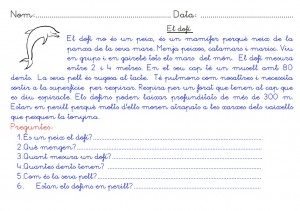 Nom: Data:
El dofí
El dofí no és un peix, és un mamífer perquè neix de la
panxa de la seva mare. Menja peixos, calamars i marisc. Viu
en grups i en gairebé tots els mars del món. El dofí mesura
entre 2 i 4 metres. En el seu cap té un musell amb 80
dents. La seva pell és rugosa al tacte. Té pulmons com nosaltres i necessita
sortir a la superfície per respirar. Respira per un forat que tenen al cap que
es diu espiracle. Els dofins poden baixar profunditats de més de 300 m.
Estan en perill perquè molts d'ells moren atrapats a les xarxes dels vaixells
que pesquen la tonyina.
Preguntes:
1. És un peix el dofí?
2. Què mengen?
3. Quant mesura un dofí?
4. Quantes dents té?
5. Com és la seva pell?
6. Estan els dofins en perill?